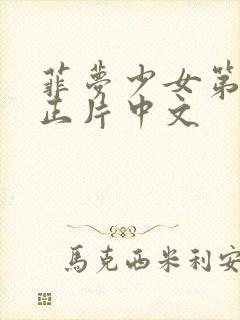 菲梦少女第
正片中文
馬克西米利安